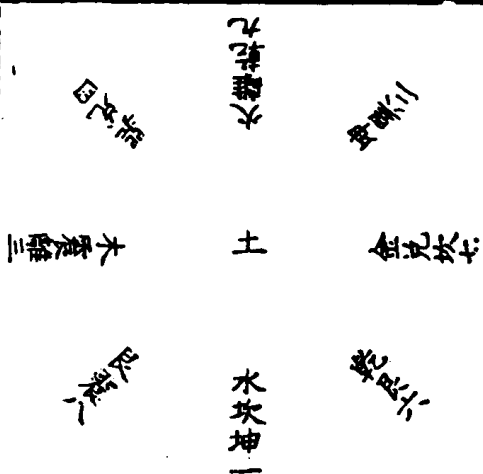 巽兌四
火離乾九
坤巽二
木震離三
土
金兌坎七
艮震八
水坎坤一
乾艮六